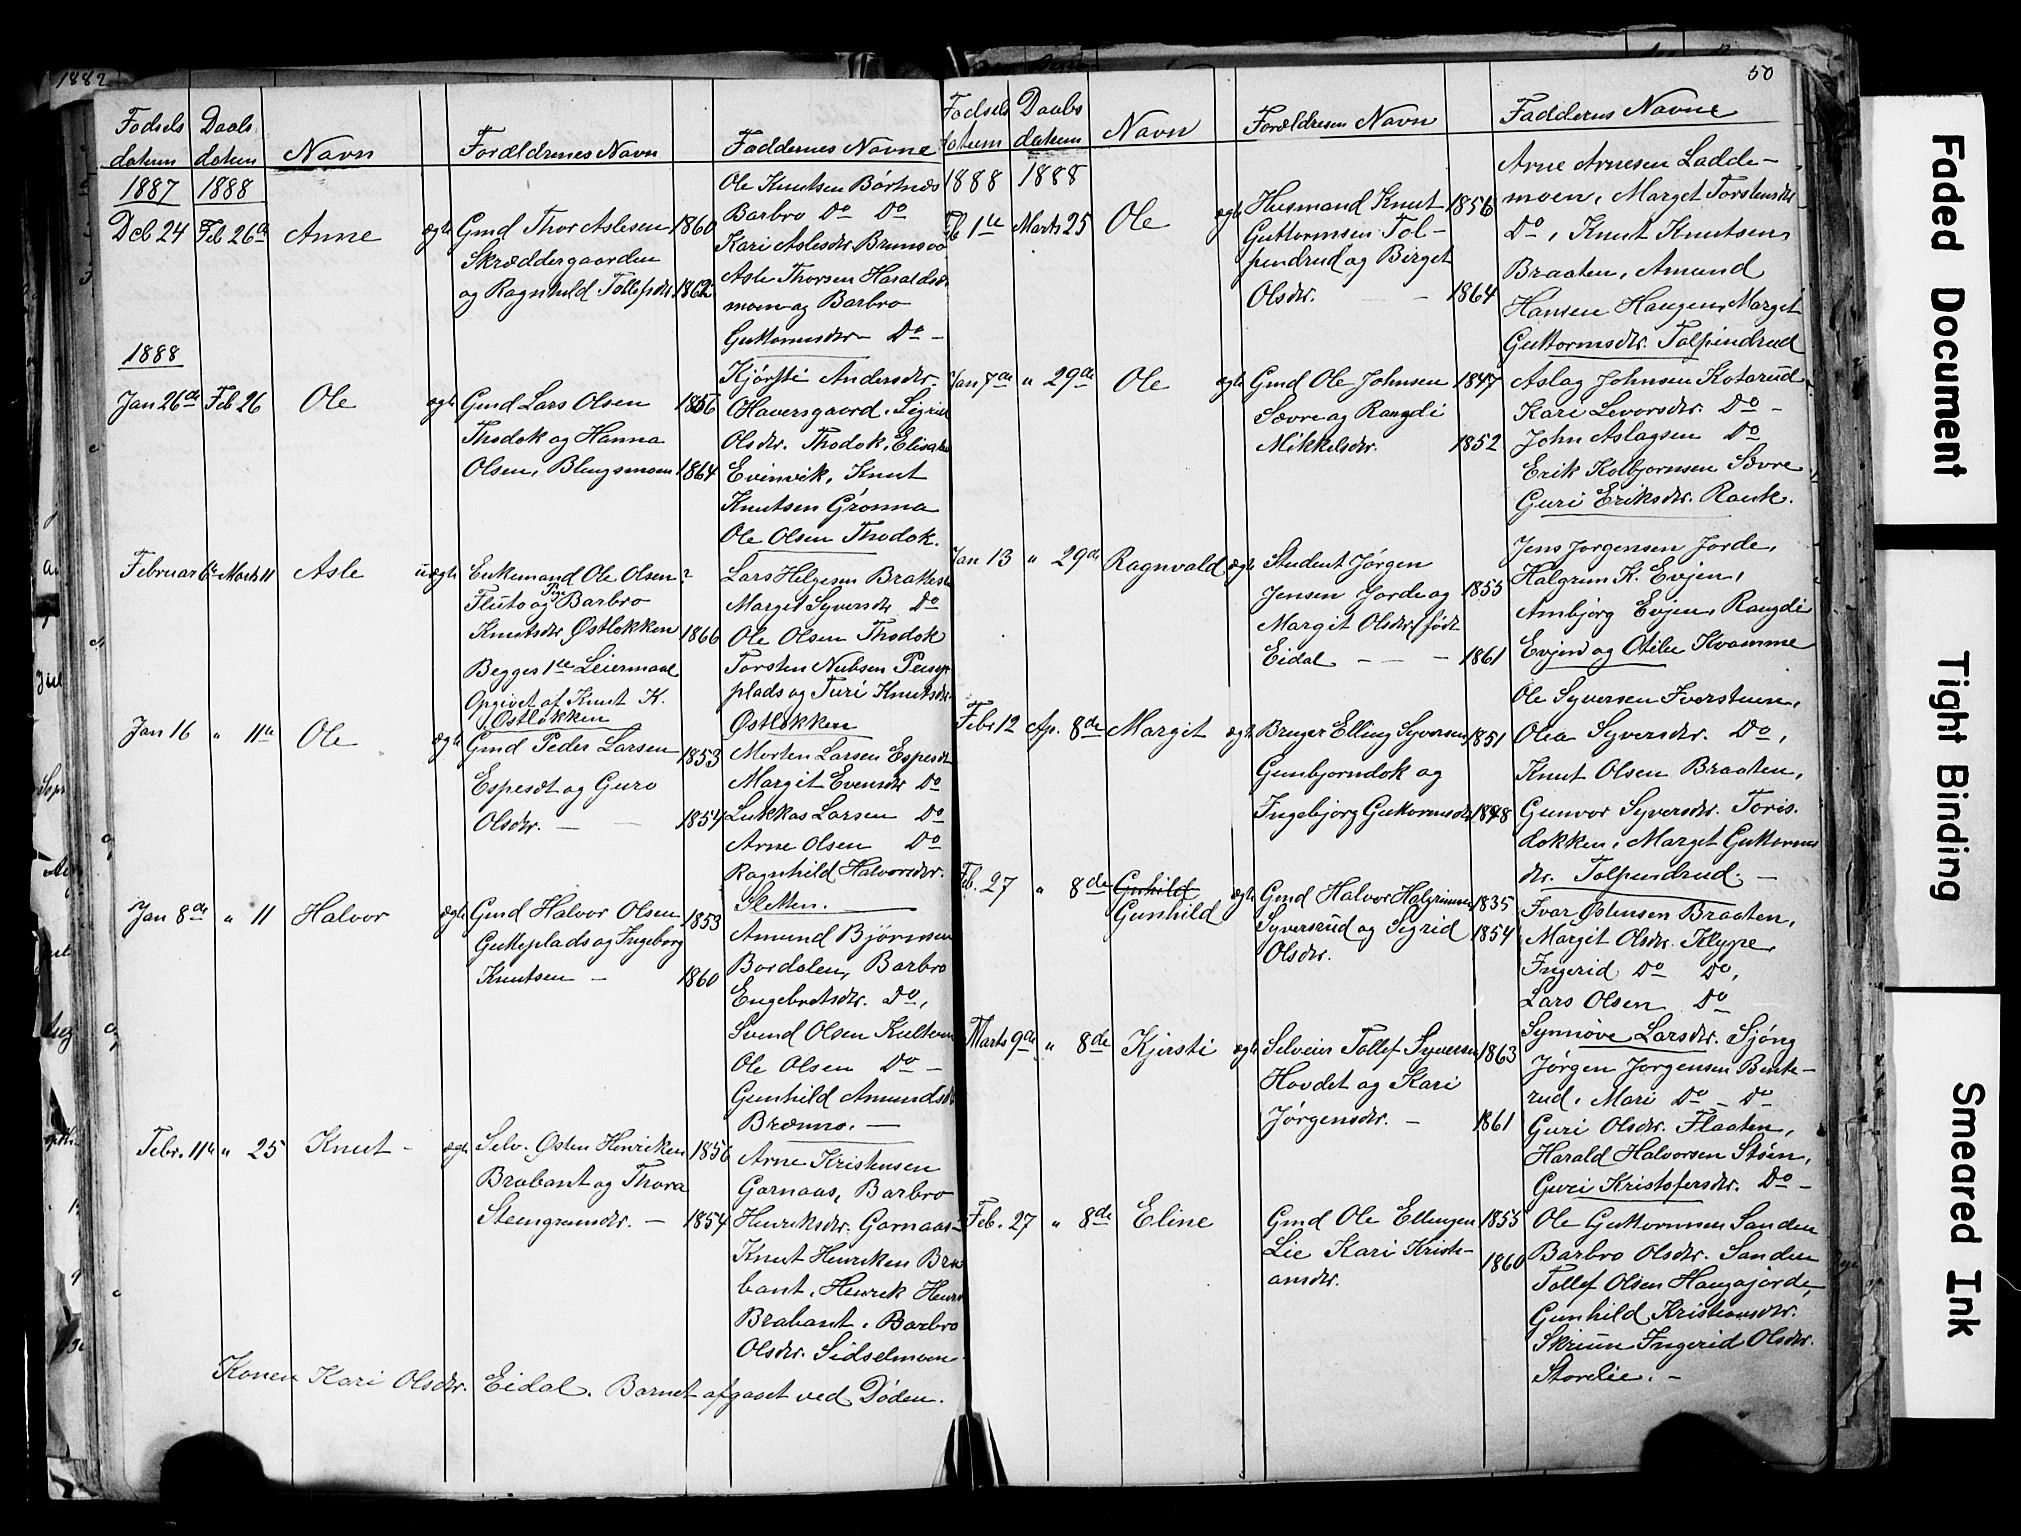 1882
Fødsels
datum
Daabs
datum
Navn
Forældrenes Navn
Faddernes Navne
1887
1888
Dcb 24
Feb 26de
Anne
ægte
Gmd Thor Aslesen
1860
Skræddergaarden
og Ragnhild Tollefsdtr.
1862
Ole Knutsen Børtnæs
Barbro Do Do
Kari Aslesdtr
Asle Thorsen Haralds
moen og Barbro
Guttormsdtr Do -
1888
Jan 26de
Feb 26
Ole
ægte
Gmd Lars Olsen
1856
Thodok og Hanna
Olsen,
1864
Kjørsti Andersdtr.
Haversgaard. Sigrid
Olsdtr. Thodok,
Evenvik, Knut
Knutsen Grønna
Ole Olsen Thodok.
Februar 6te
Marts 11
Asle
uægte
Enkemand Ole Olsen
?
Fluto og Pige Barbro
Knutsdtr Østlokken
1866
Begges 1te Leiermaal
Opgivet af Knut K.
Østlokken
Lars Helgesen
Margit Syversdtr Do
Ole Olsen Thodok
Torsten Nubsen
plads og Turi Knutsdtr.
Østlokken
Jan 16
" 11te
Ole
ægte
Gmd Peder Larsen
1853
Espeset og Guro
Olsdtr. - -
1854
Morten Larsen Espeset
Margit Evensdtr Do
Lukkas Larsen Do
Arne Olsen Do
Ragnhild Halvorsdtr.
Sletten.
Jan 8de
" 11
Halvor
ægte
Gmd Halvor Olsen
1853
Gukeplads og Ingeborg
Knutsen -
1860
Amund Bjørnsen
Bordalen, Barbro
Engebretsdtr. Do,
Svend Olsen
Ole Olsen Do -
Gunhild Amundsdtr
Brænno. -
Febr. 11te
" 25
Knut -
ægte
Selv. Østen Henriksen
1856
Brabant og Thora
Steengrimsdtr. -
1854
Arne Kristensen
Garnaas, Barbro
Henriksdtr. Garnaas
Knut Henriksen Bra
bant, Henrik Henr
Brabant. Barbro
Olsdtr. Sidselmoen
Konen Kari Olsdtr. Eidal. Barnet afgaaet ved Døden.
50
Fødsels
datum
Daabs
datum
Navn
Forældrenes Navn
Faddernes Navne
1888
1888
Feb 1te
Marts 25
Ole
ægte
Husmand Knut
1856
Guttormsen Tol-
pendrud og Birget
Olsdtr. - -
1864
Arne Arnesen Ladde-
moen, Marget Torstensdtr
Do, Knut Knutsen
Braaten, Amund
Hansen Haugen, Marget
Guttormsdtr. Tolpindrud
Jan 7de
" 29de
Ole
ægte
Gmd Ole Johnsen
1847
Sævre og Rangdi
Mikkelsdtr.
1852
Aslag Johnsen Kotarud
Kari Levorsdtr. Do -
John Aslagsen Do
Erik Kolbjornsen Sævre
Guri Eriksdtr. Rauk.
Jan 13
" 29de
Ragnvald
ægte
Student Jørgen
Jensen Jorde og
1855
Margit Olsdtr. (født
Eidal - - -
1861
Jens Jorgensen Jorde,
Halgrim K. Evjen,
Ambjørg Evjen, Rangdi
Evjen og Otilie Kvamme
Febr. 12
Ap. 8de
Margit
ægte
Bruger Elling Syversen
1851
Gunbjorndok og
Ingebjorg Guttormsdtr
1848
Ole Syversen Iversteen,
Olea Syversdtr. Do,
Knut Olsen Braaten,
Gunvor Syversdtr. Toris-
dokken, Marget Guttorms
dtr. Tolpendrud. -
Feb. 27
" 8de
Gunhild
ægte
Gmd Halvor Halgrimsen
1835
Syversrud og Sigrid
1854
Olsdtr.
Ivar Østensen Braaten,
Margit Olsdtr. Klype,
Ingerid Do Do,
Lars Olsen Do
Synnøve Larsdtr. Sjøng
Marts 9de
" 8de
Kjersti
ægte
Selveier Tollef Syversen
1863
Hovdet og Kari
Jørgensdtr. -
1861
Jørgen Jorgensen Bente-
rud, Mari Do - Do
Guri Olsdtr. Flaaten,
Harald Halvorsen Støen,
Guri Kristofersdtr. Do -
Feb. 27
" 8de
Eline
Gmd Ole Ellingsen
1855
Lie Kari Kristi-
1860
ansdtr.
Ole Guttormsen Sanden
Barbro Olsdtr. Sanden
Tollef Olsen Haugajorde,
Gunhild Kristiansdtr.
Skrium Ingerid Olsdtr.
Storelie. -
Faded Document
Tight Binding
Smeared Ink